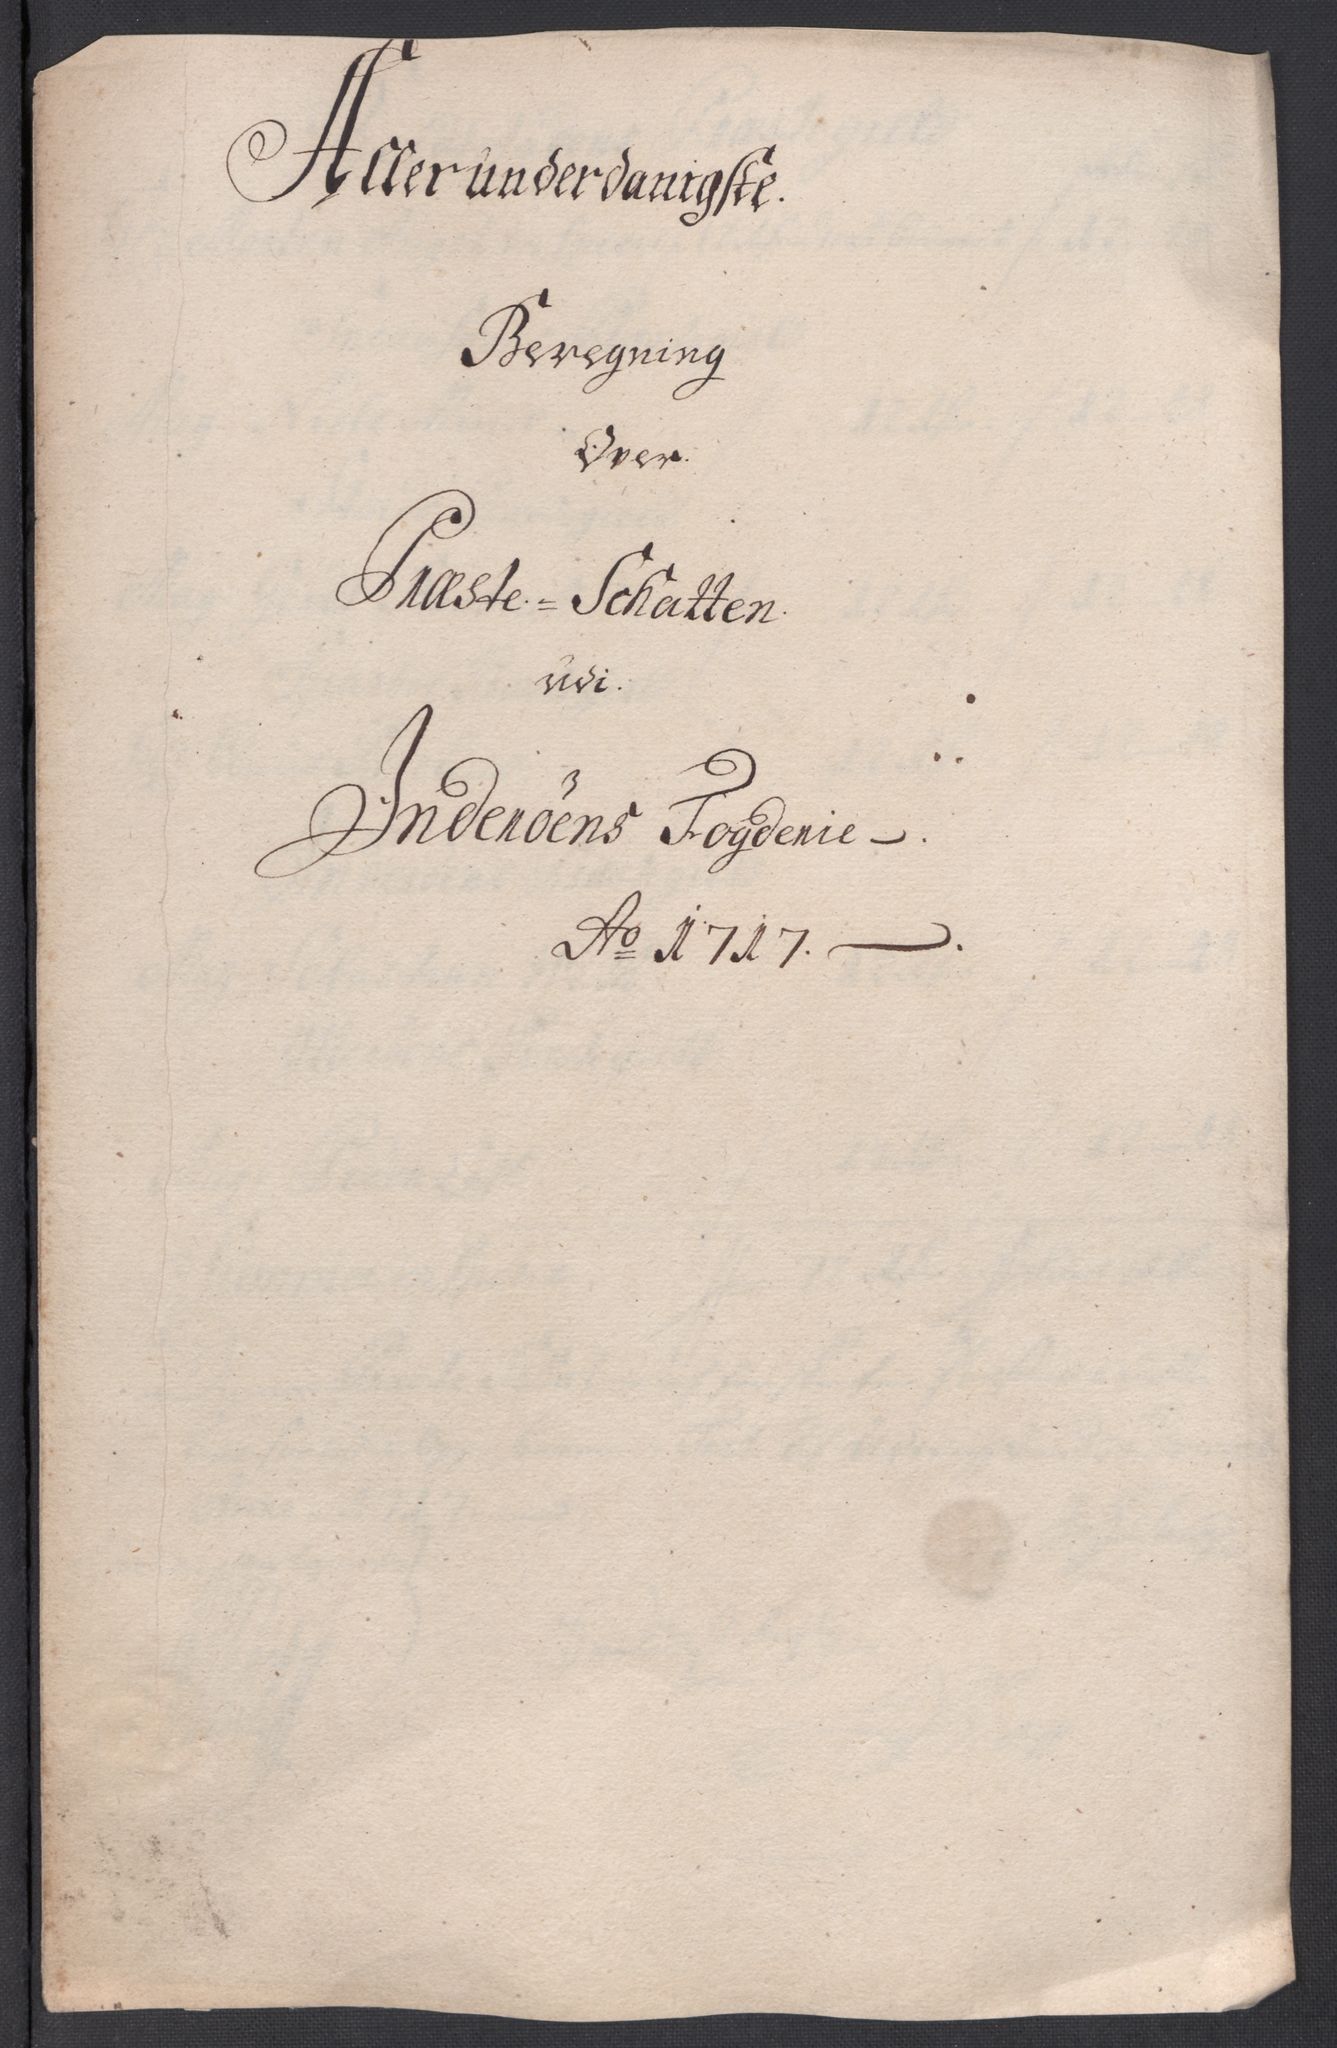 Allerunderdanigste.
Beregning
Over.
Præste.=Schatten.
udi.
Inderöens Fogderie -.
Ao 1717. —.